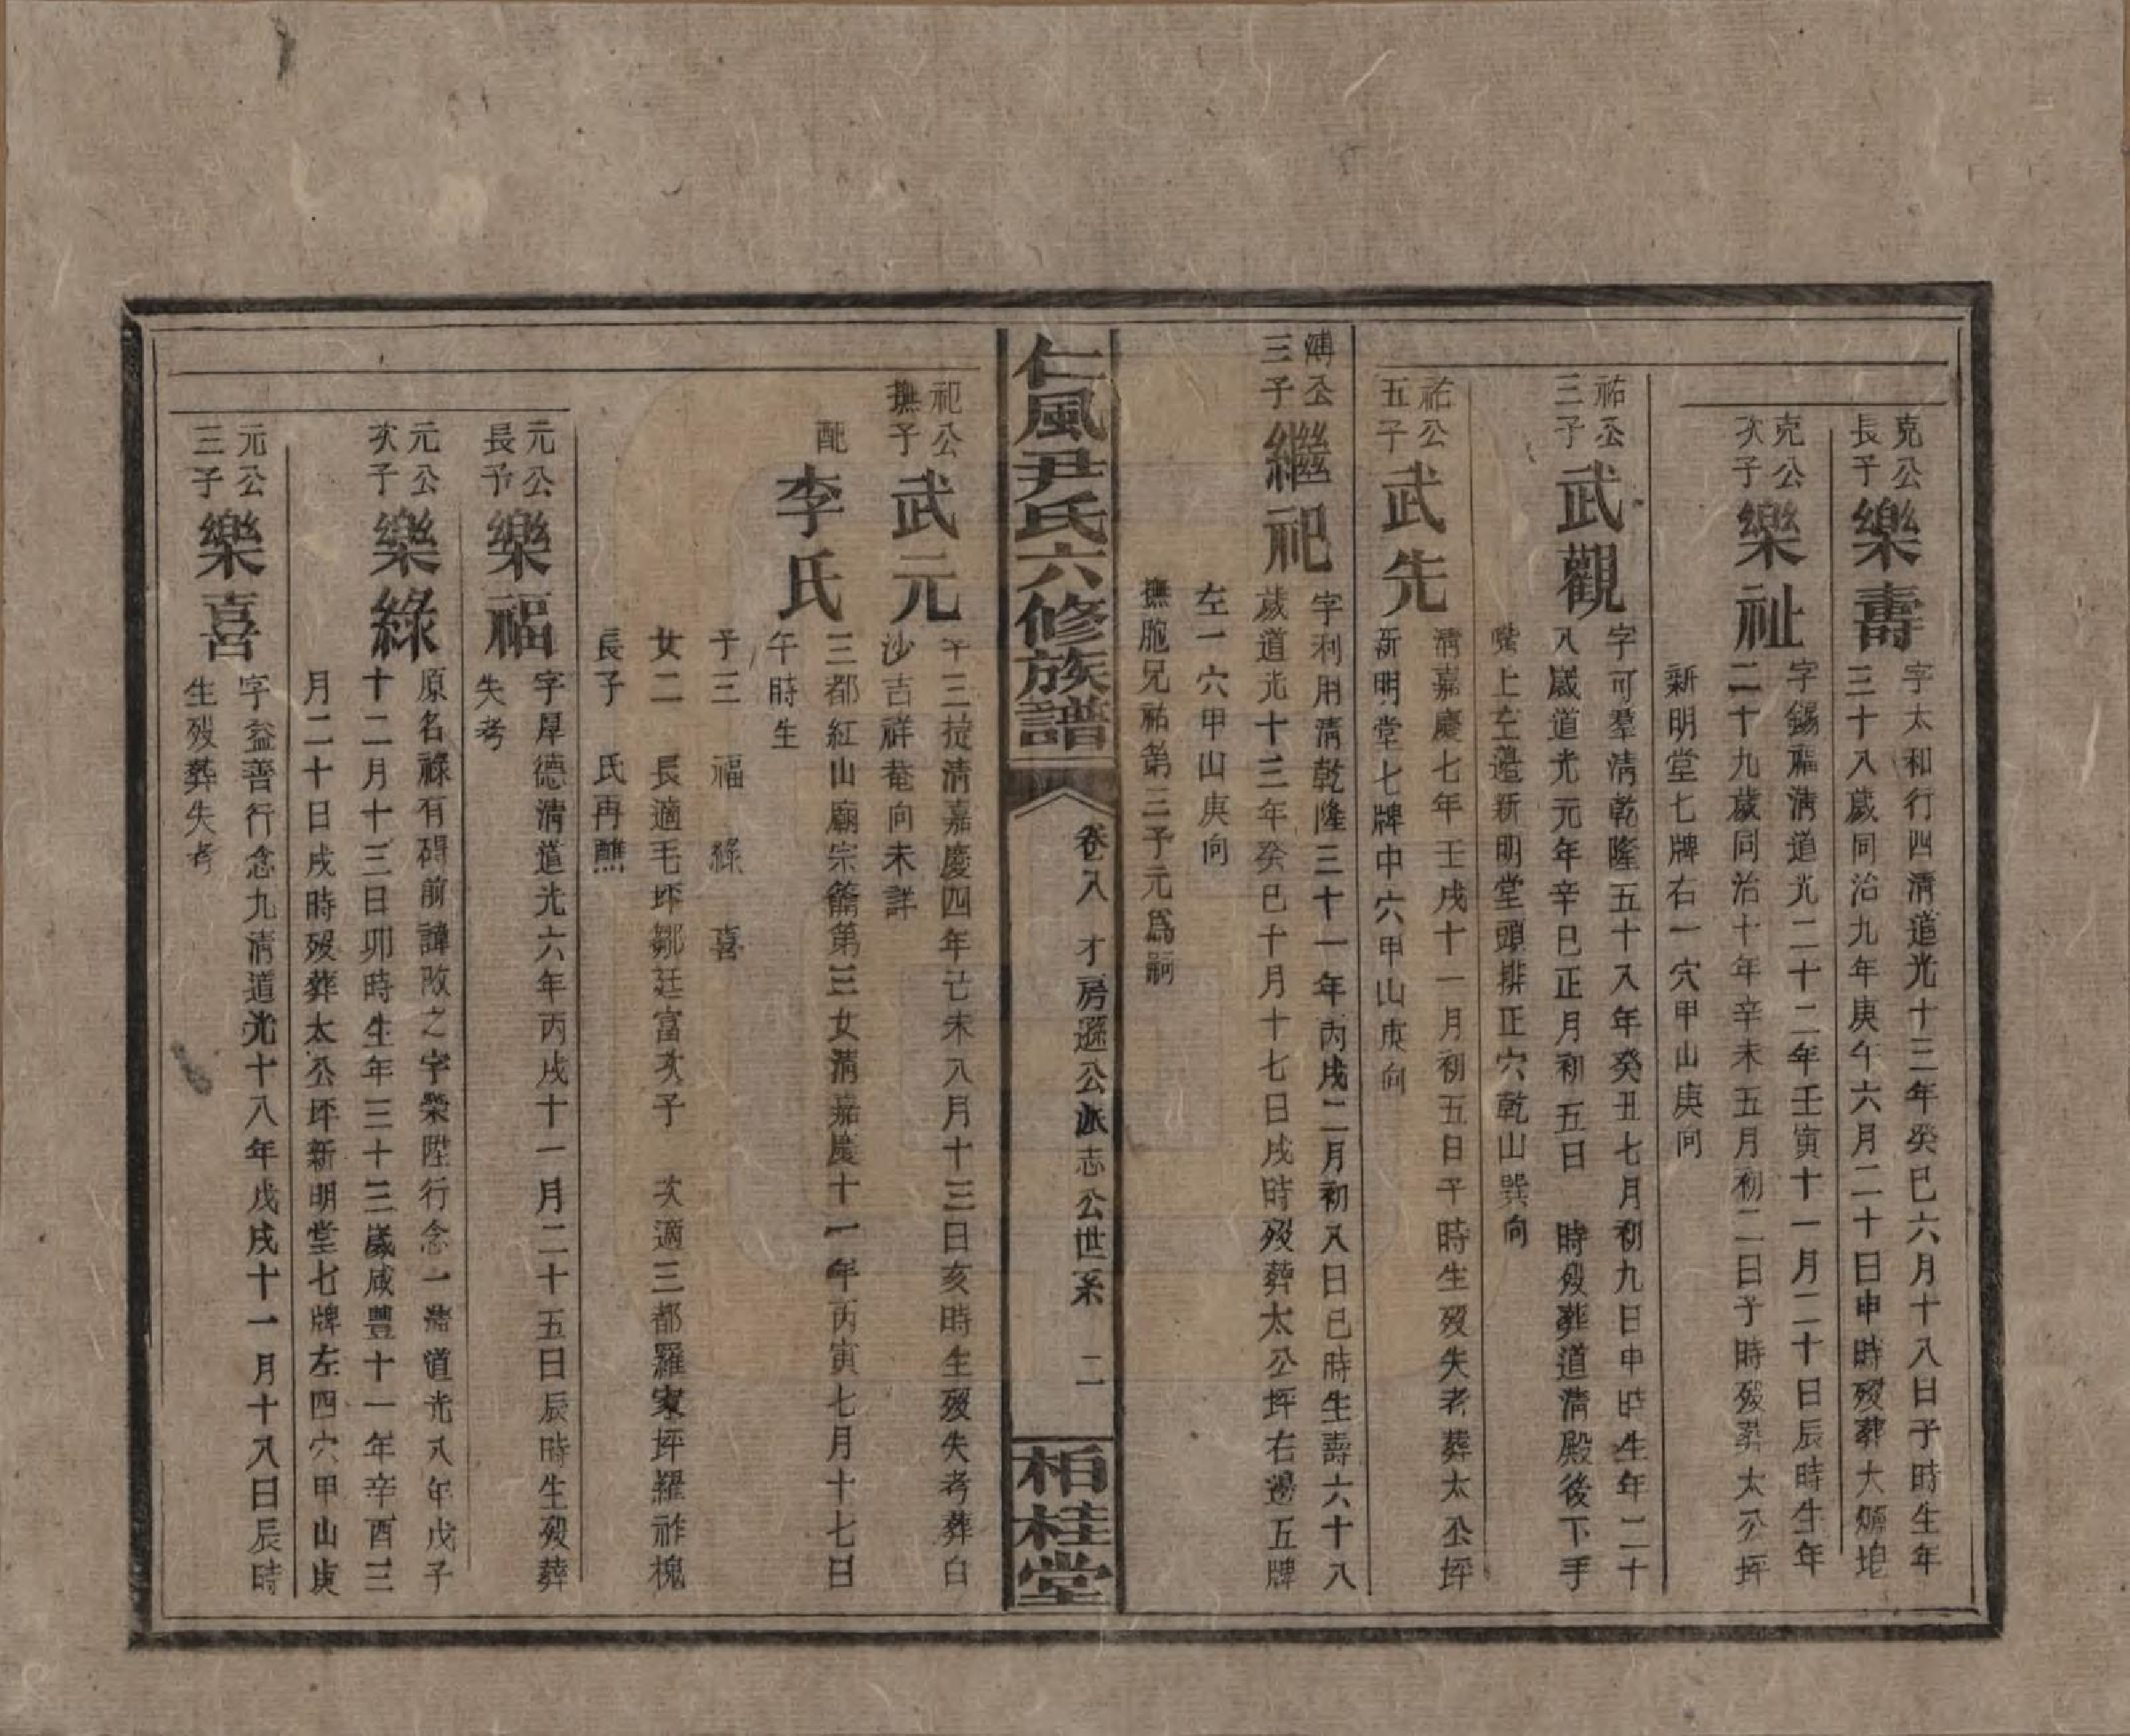 克公長子
樂壽
字太和行四清道光十三年癸巳六月十八日子時生年
三十八歲同治九年庚午六月二十日申時歿葬大
克公次子
樂祉
字錫嘏清道光二十二年壬寅十一月二十日辰時生年
二十九歲同治十年辛未五月初二日子時歿葬太公坪
新明堂七牌右一穴甲山庚向
祐公三子
武觀
字可羣清乾隆五十八年癸丑七月初九日申時生年二十
八歲道光元年辛巳正月初五日 時歿葬道清殿後下手
嘴上左邉新明堂頭排正穴乾山巽向
祐公五子
武先
清嘉慶七年壬戌十一月初五日午時生歿失考葬太公坪
新明堂七牌中六甲山庚向
溥公三子
繼祀
字利用清乾隆三十一年丙戌二月初八日巳時生壽六十八
歲道光十三年癸巳十月十七日戌時歿葬太公坪右邊五牌
左一穴甲山庚向
撫胞兄祐第三子元爲嗣
仁風尹氏六修族譜
卷八 才房遜公派志公世系 二
栢桂堂
祀公撫子
武元
字三㨗清嘉慶四年己未八月十三日亥時生歿失考葬白
沙吉祥菴向未詳
配
李氏
三都紅山廟宗簥第三女清嘉慶十一年丙寅七月十七日
午時生
子三 福 綠 喜
女二 長適毛坪鄒廷富次子 次適三都羅家坪羅祚槐
長子 氏再醮
元公長子
樂福
字厚德清道光六年丙戌十一月二十五日辰時生歿葬
失考
元公次子
樂綠
原名祿有碍前諱改之字榮陞行念一清道光八年戊子
十二月十三日卯時生年三十三歲咸豐十一年辛酉三
月二十日戌時歿葬太公坪新明堂七牌左四穴甲山庚
元公三子
樂喜
字益善行念九清道光十八年戊戌十一月十八日辰時
生歿葬失考